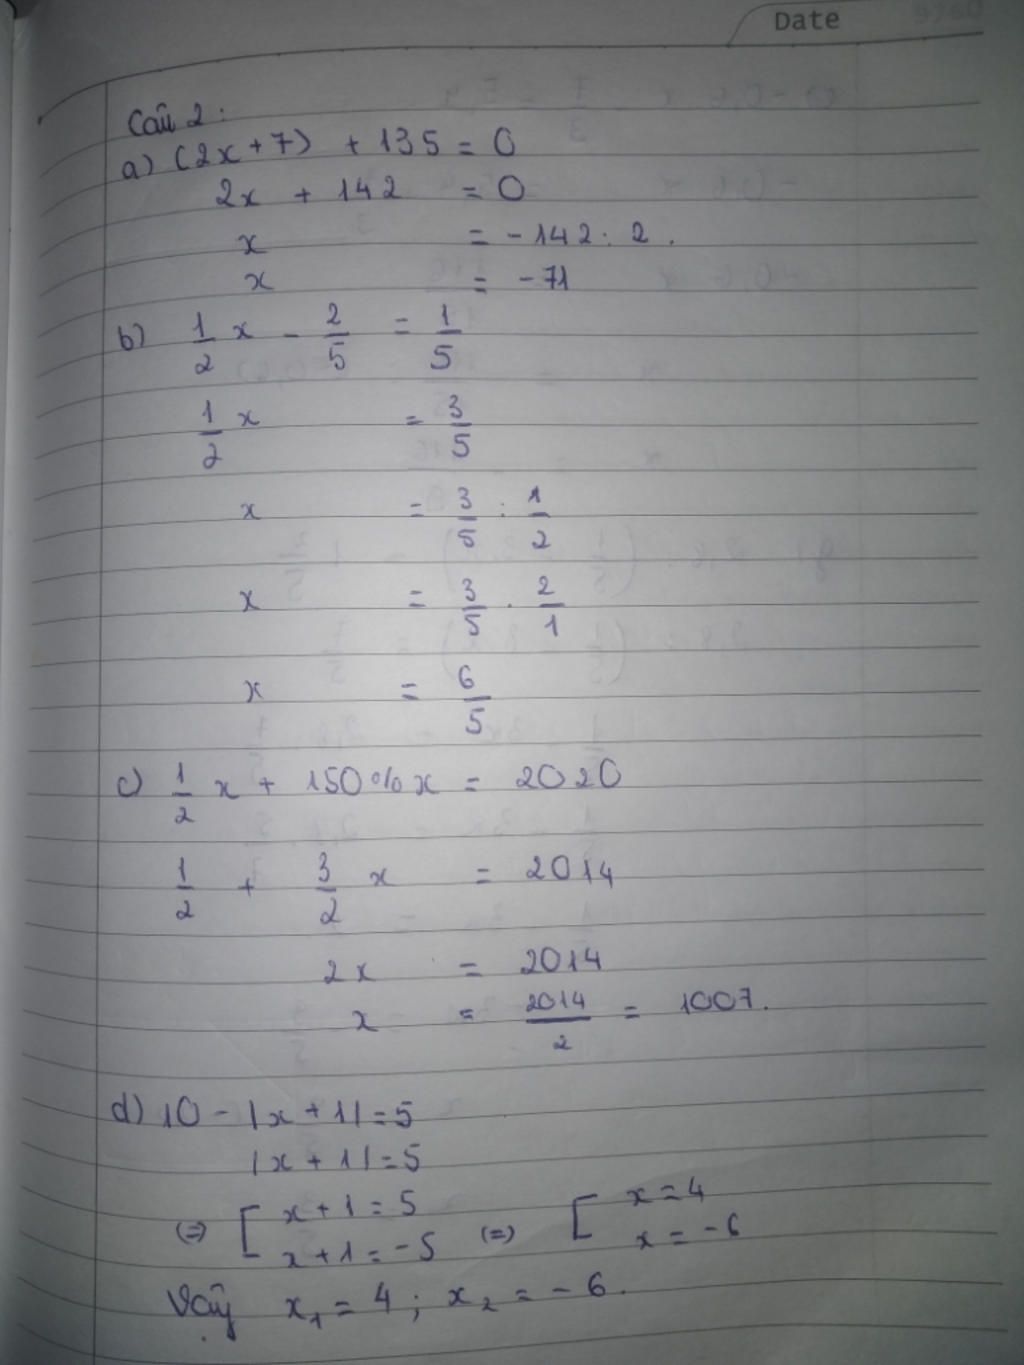 Date
Câu 2:
a) (2x+7) + 135 = 0
2x + 142 = 0
x = -142 : 2.
x = -71
b) 1/2 x - 2/5 = 1/5
1/2 x = 3/5
x = 3/5 : 1/2
x = 3/5 . 2/1
x = 6/5
c) 1/2 x + 150% x = 2020
1/2 + 3/2 x = 2014
2x = 2014
x = 2014/2 = 1007.
d) 10 - |x+1| = 5
|x+1| = 5
(=) [ x+1 = 5 (=) [ x = 4
x+1 = -5 x = -6
Vậy x₁ = 4 ; x₂ = -6.